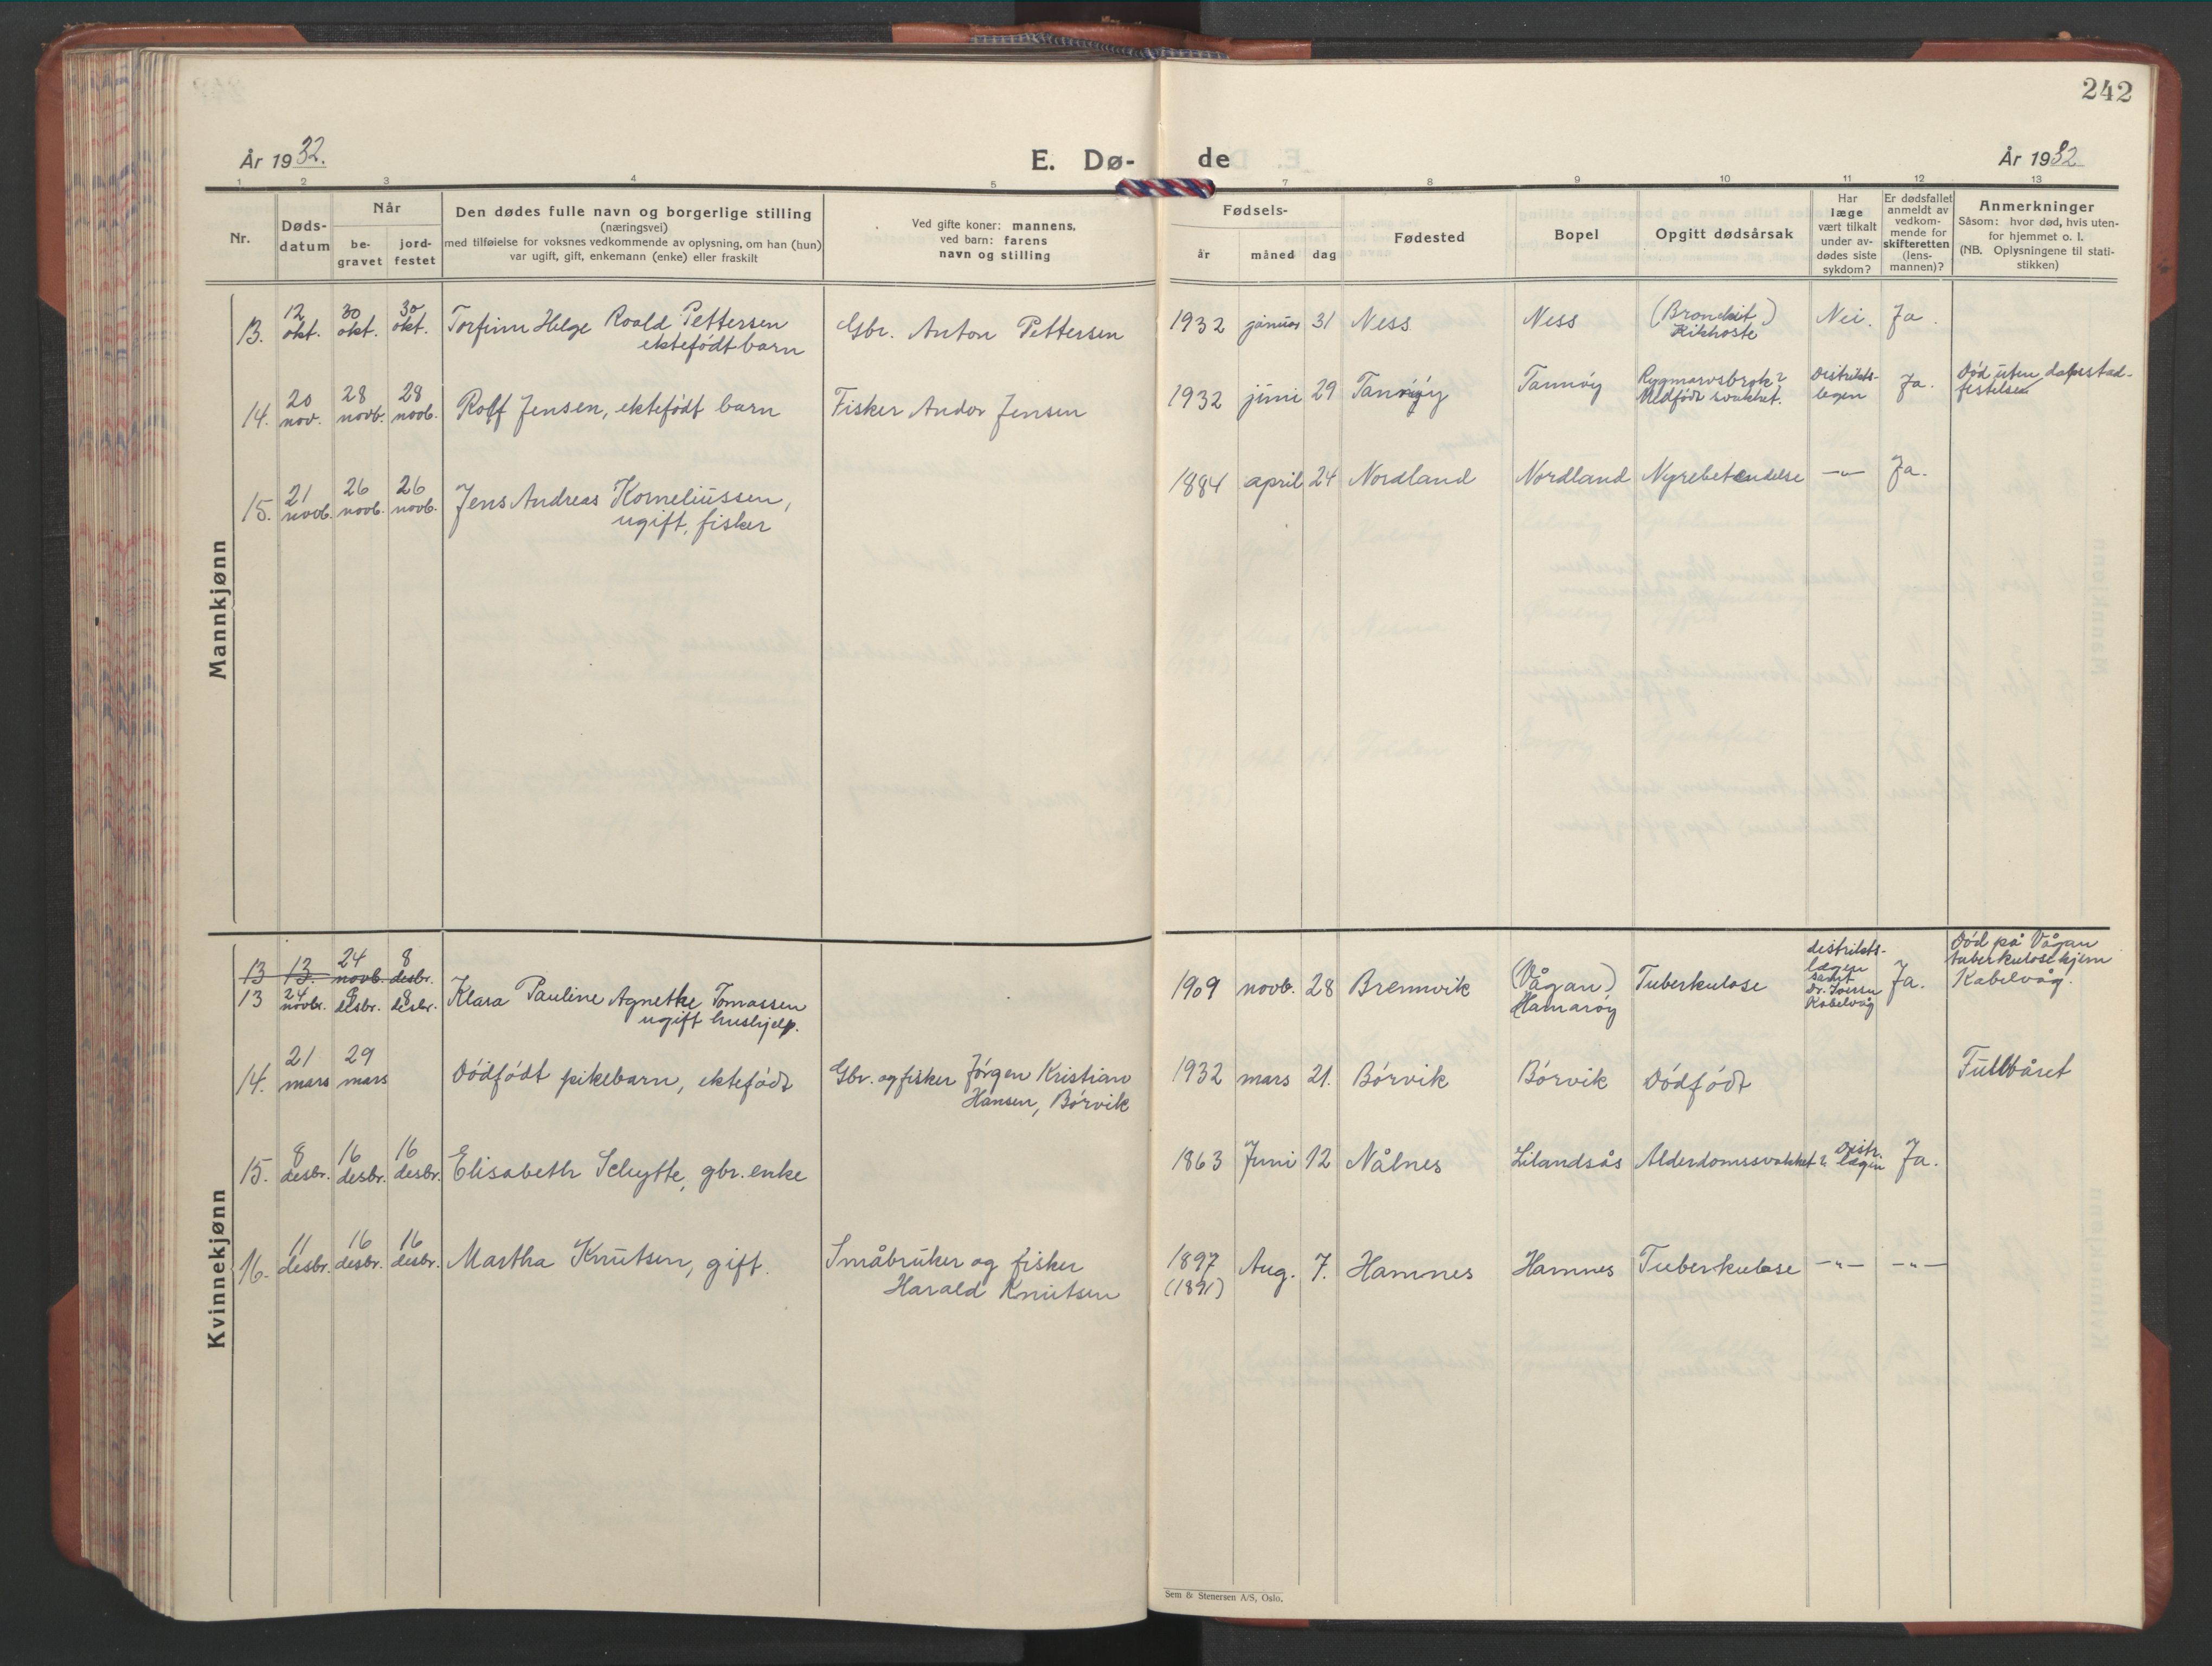 242
År 1932.
E. Dø-
de
År 1932
1 2 3 4 5 7 8 9 10 11 12 13
Nr.
Døds-
datum
Når
be-
gravet
jord-
festet
Den dødes fulle navn og borgerlige stilling
(næringsvei)
med tilføielse for voksnes vedkommende av oplysning, om han (hun)
var ugift, gift, enkemann (enke) eller fraskilt
Ved gifte koner: mannens,
ved barn: farens
navn og stilling
Fødsels-
år
måned
dag
Fødested
Bopel
Opgitt dødsårsak
Har
læge
vært tilkalt
under av-
dødes siste
sykdom?
Er dødsfallet
anmeldt av
vedkom-
mende for
skifteretten
(lens-
mannen)?
Anmerkninger
Såsom: hvor død, hvis uten-
for hjemmet o. l.
(NB. Oplysningene til stati-
stikken)
Mannkjønn
13. 12 okt. 30 okt. 30 okt. Torfinn Helge Roald Pettersen Gbr. Anton Pettersen 1932 januar 31 Ness Ness (Bronchit) Nei. Ja.
ektefødt barn Kikhoste
14. 20 nov. 28 novb. 28 novb. Rolf Jensen, ektefødt barn Fisker Andor Jensen 1932 juni 29 Tannøy Tannøy Rygmarvsbrok? Distrikts- Ja. Død uten dåpsstad-
Medfødt svakhet. legen festelse
15. 21 novb. 26 novb. 26 novb. Jens Andreas Korneliussen, 1884 april 24 Nordland Nordland Nyrebetendelse —"— Ja.
ugift, fisker
Kvinnekjønn
13 13. 24 novb. 8 desbr.
13 24 novbr. 8 desbr. 8 desbr. Klara Pauline Agnethe Tomassen 1909 novb. 28 Brennvik (Vågan) Tuberkulose distrikts- Ja. Død på Vågan
ugift hushjelp. Hamarøy lægen tuberkulosehjem
samt Kabelvåg.
Dr.
Kabelvåg
14. 21 mars 29 mars Dødfødt pikebarn, ektefødt Gbr. og fisker Jørgen Kristian 1932 mars 21. Børvik Børvik Dødfødt Fullbåret
Hansen, Børvik
15. 8 desbr. 16 desbr. 16 desbr. Elisabeth Schytte, gbr. enke 1863 Juni 12 Nålnes Lilandsås Alderdomssvakhet? Distr. Ja.
lægen
16. 11 desbr. 16 desbr. 16 desbr. Martha Knutsen, gift. Småbruker og fisker 1897 Aug. 7. Hamnes Hamnes Tuberkulose —"— —"—
Harald Knutsen (1891)
Sem & Stenersen A/S, Oslo.